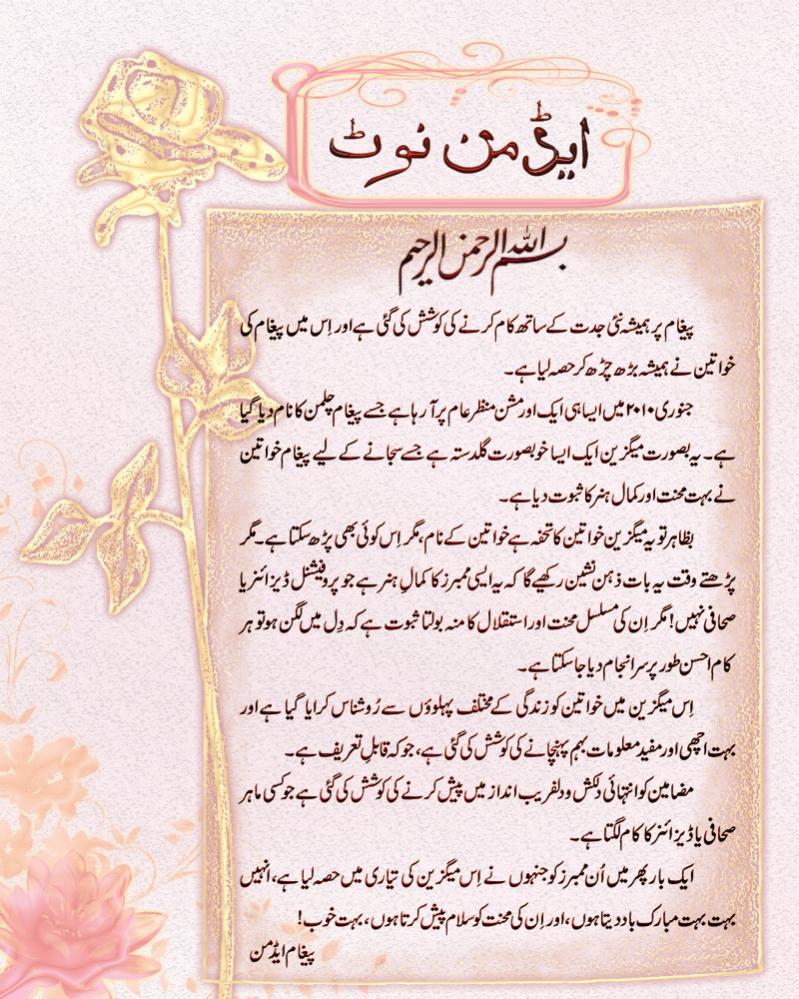 ایڈمن نوٹ
بسم اللہ الرحمن الرحیم
پیغام پر ہمیشہ نئی جدت کے ساتھ کام کرنے کی کوشش کی گئی ہے اور اِس میں پیغام کی
خواتین نے ہمیشہ بڑھ چڑھ کر حصہ لیا ہے۔
جنوری ۲۰۱۰ میں ایسا ہی ایک اور مشن منظر عام پر آ رہا ہے جسے پیغام چلمن کا نام دیا گیا
ہے۔ یہ بصورت میگزین ایک ایسا خوبصورت گلدستہ ہے جسے سجانے کے لیے پیغام خواتین
نے بہت محنت اور کمال ہنر کا ثبوت دیا ہے۔
بظاہر تو یہ میگزین خواتین کا تحفہ ہے خواتین کے نام، مگر اِس کوئی بھی پڑھ سکتا ہے۔ مگر
پڑھتے وقت یہ بات ذہن نشین رکھیے گا کہ یہ ایسی ممبرز کا کمالِ ہنر ہے جو پروفیشنل ڈیزائنر یا
صحافی نہیں! مگر اِن کی مسلسل محنت اور استقلال کا منہ بولتا ثبوت ہے کہ دِل میں لگن ہو تو ہر
کام احسن طور پر سرانجام دیا جا سکتا ہے۔
اِس میگزین میں خواتین کو زندگی کے مختلف پہلوؤں سے رُوشناس کرایا گیا ہے اور
بہت اچھی اور مفید معلومات بہم پہنچانے کی کوشش کی گئی ہے، جو کہ قابلِ تعریف ہے۔
مضامین کو انتہائی دلکش و دلفریب انداز میں پیش کرنے کی کوشش کی گئی ہے جو کسی ماہر
صحافی یا ڈیزائنر کا کام لگتا ہے۔
ایک بار پھر میں اُن ممبرز کو جنہوں نے اِس میگزین کی تیاری میں حصہ لیا ہے، انہیں
بہت بہت مبارک باد دیتا ہوں، اور اِن کی محنت کو سلام پیش کرتا ہوں، بہت خوب!
پیغام ایڈمن